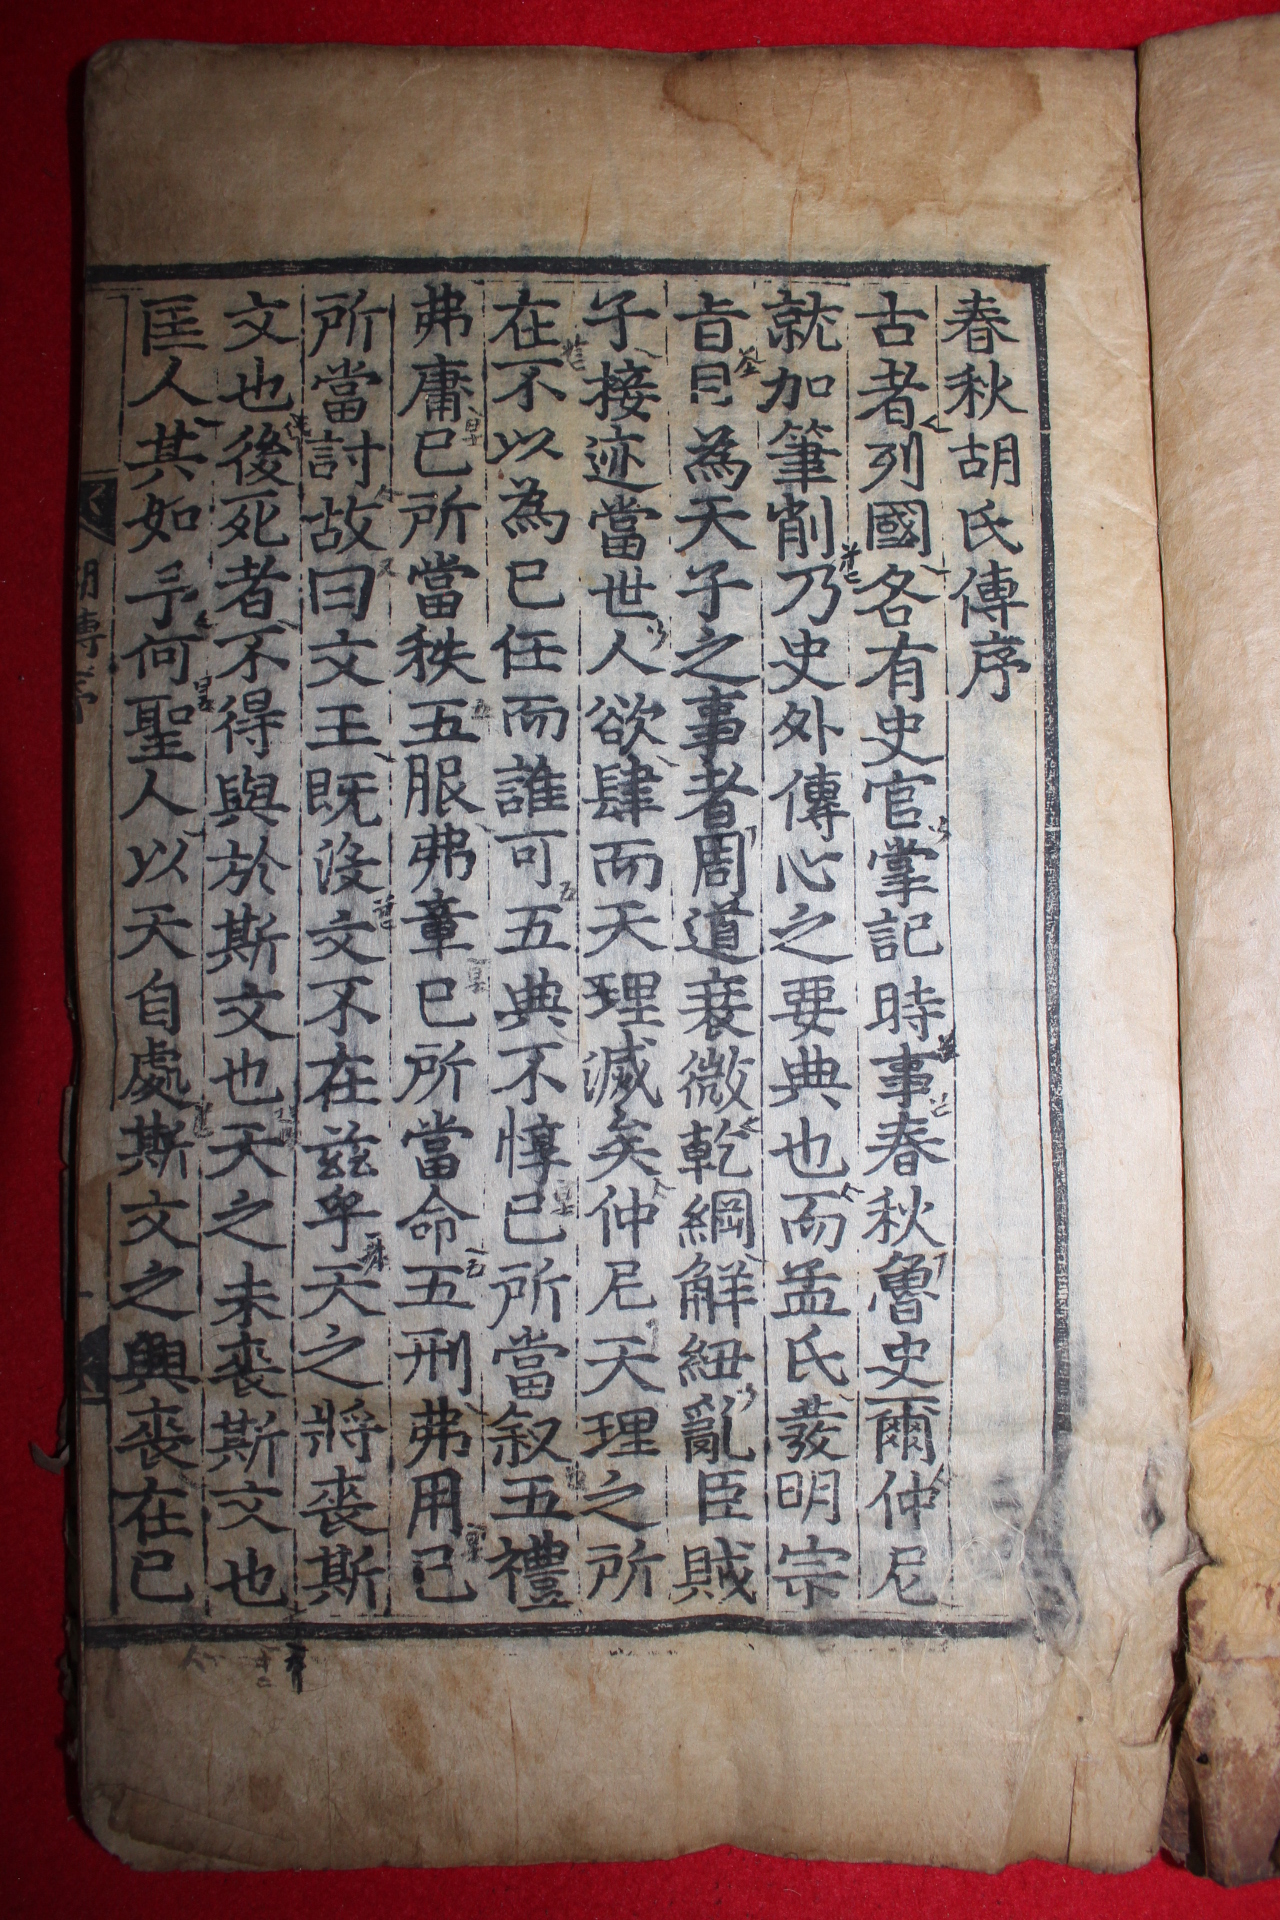 春秋胡氏傳序
古者列國各有史官掌記時事春秋魯史爾仲尼
就加筆削乃史外傳心之要典也而孟氏發明宗
旨目為天子之事者周道衰微乾綱解紐亂臣賊
子接迹當世人欲肆而天理滅矣仲尼天理之所
在不以為已任而誰可五典不惇已所當叙五禮
弗庸已所當秩五服弗章已所當命五刑弗用已
所當討故曰文王既没文不在兹乎天之將喪斯
文也後死者不得與於斯文也天之未喪斯文也
匡人其如予何聖人以天自處斯文之興喪在已
胡傳序